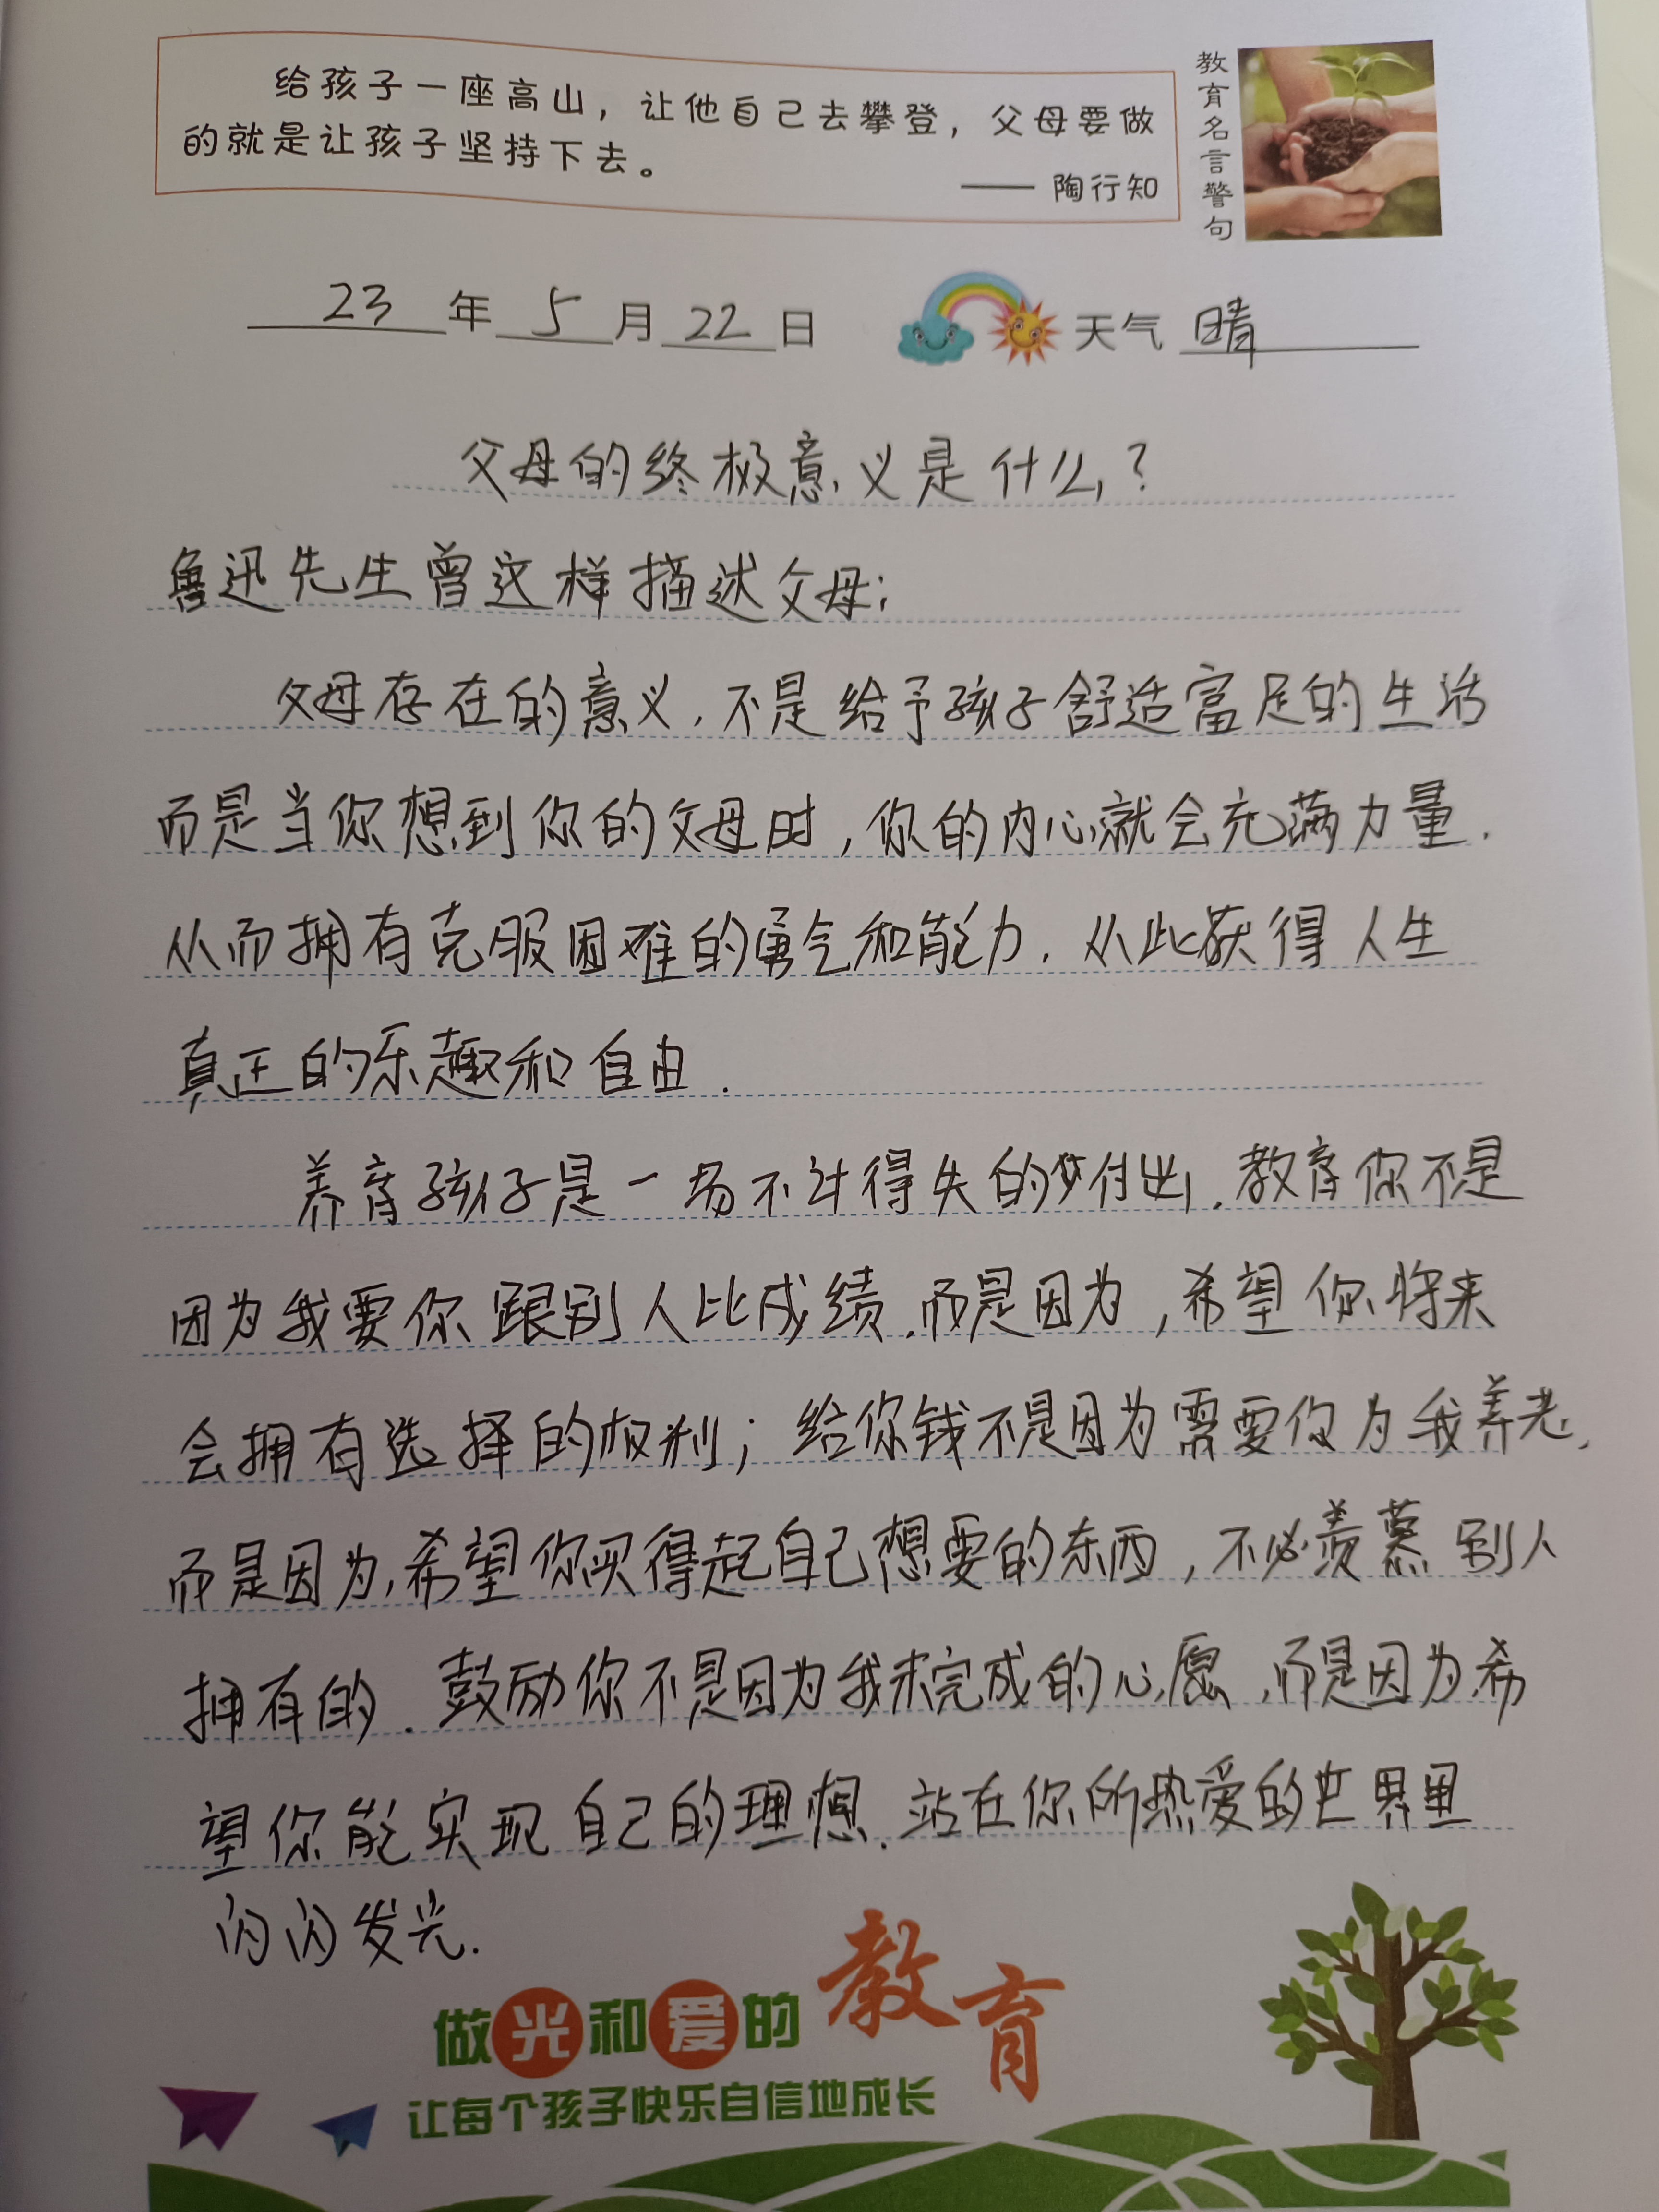 给孩子一座高山，让他自己去攀登，父母要做
的就是让孩子坚持下去。
—— 陶行知
教育名言警句
23年5月22日 天气 晴
父母的终极意义是什么？
鲁迅先生曾这样描述父母：
父母存在的意义，不是给予孩子舒适富足的生活
而是当你想到你的父母时，你的内心就会充满力量.
从而拥有克服困难的勇气和能力.从此获得人生
真正的乐趣和自由.
养育孩子是一场不计得失的付出.教育你不是
因为我要你跟别人比成绩.而是因为，希望你将来
会拥有选择的权利；给你钱不是因为需要你为我养老，
而是因为，希望你买得起自己想要的东西，不必羡慕别人
拥有的.鼓励你不是因为我未完成的心愿，而是因为，希
望你能实现自己的理想.站在你所热爱的世界里
闪闪发光.
做光和爱的教育
让每个孩子快乐自信地成长